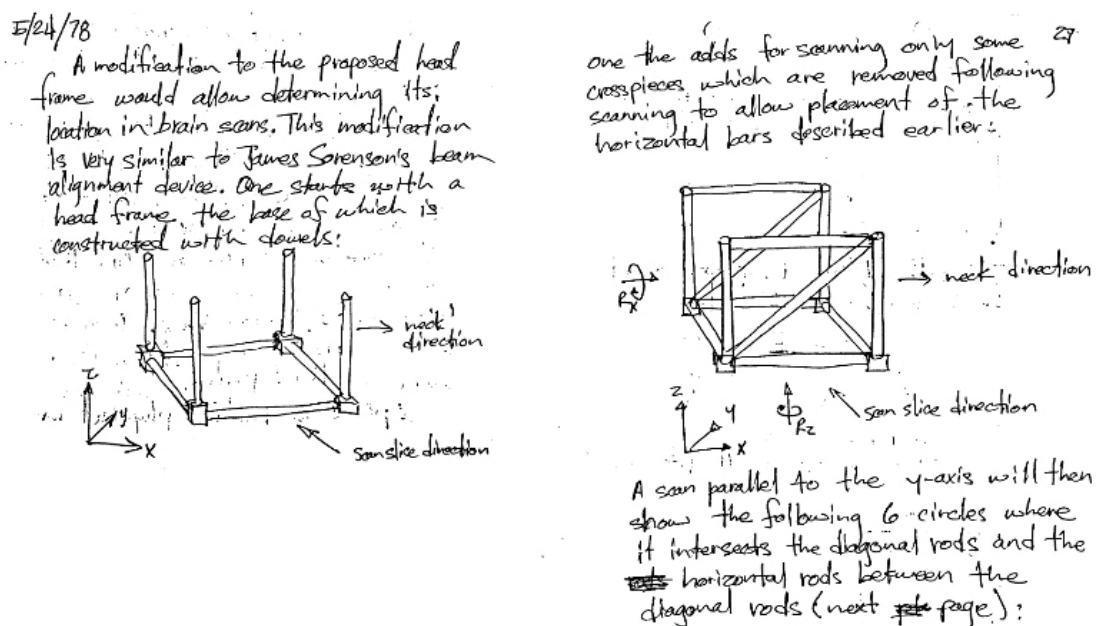 5/24/78
A modification to the proposed head
frame would allow determining its
location in brain scans. This modification
is very similar to James Sorenson's beam
alignment device. One starts with a
head frame, the base of which is
constructed with dowels:
neck
direction
z
y
x
scan slice direction
27
one the adds for scanning only some
crosspieces which are removed following
scanning to allow placement of the
horizontal bars described earlier:
Rx
neck direction
z
y
x
Rz
scan slice direction
A scan parallel to the y-axis will then
show the following 6 circles where
it intersects the diagonal rods and the
horizontal rods between the
diagonal rods (next page):